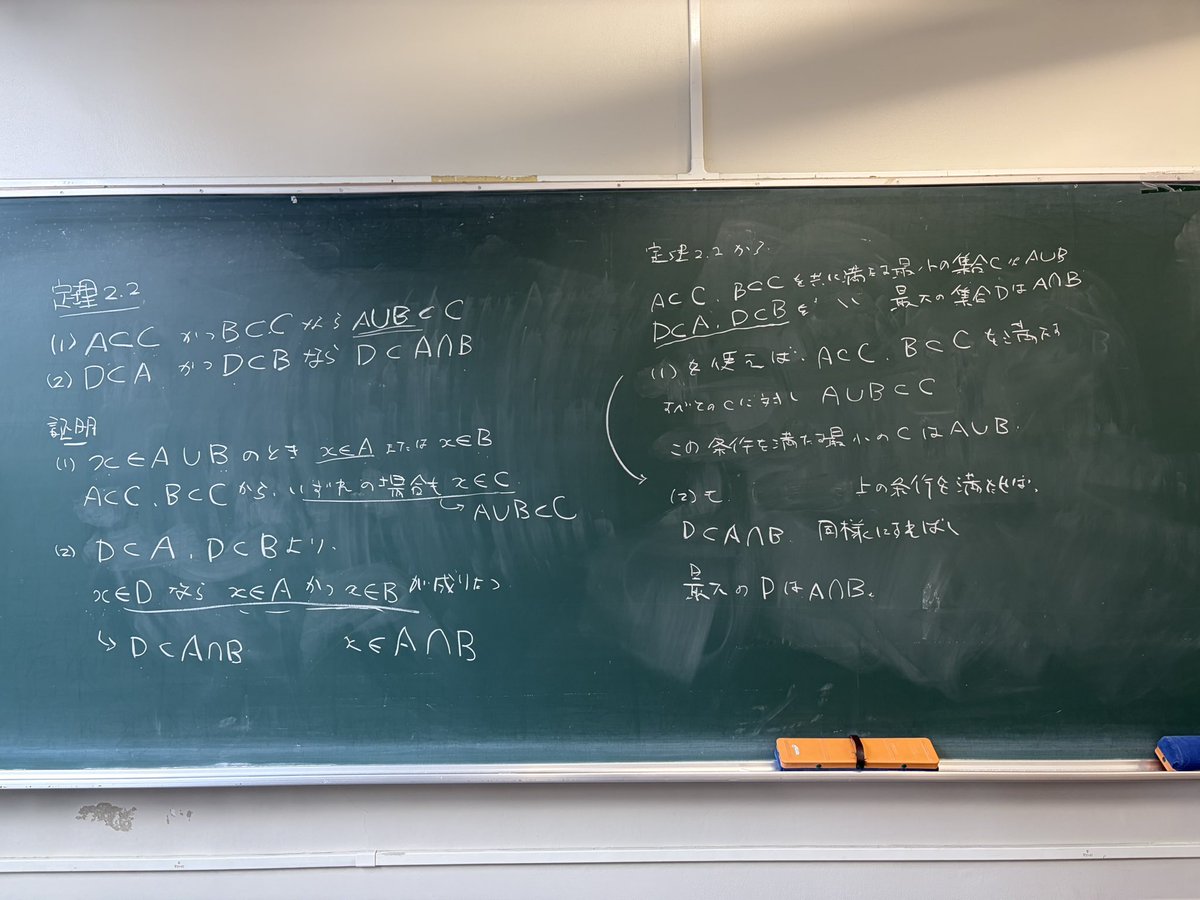 定理2.2
(1) A⊂C かつ B⊂C なら A∪B⊂C
(2) D⊂A かつ D⊂B なら D⊂A∩B
証明
(1) x∈A∪B のとき x∈A または x∈B
A⊂C, B⊂C から, いずれの場合も x∈C.
↳ A∪B⊂C
(2) D⊂A, D⊂B より,
x∈D なら x∈A かつ x∈B が成りたつ
↳ D⊂A∩B x∈A∩B
定理2.2から,
A⊂C, B⊂Cを共に満たす最小の集合CはA∪B
D⊂A, D⊂Bを 〃 最大の集合DはA∩B
(1)を使えば, A⊂C, B⊂Cを満たす
すべてのCに対し A∪B⊂C
この条件を満たす最小のCはA∪B.
(2)も 上の条件を満たせば,
D⊂A∩B. 同様にすれば
最大のDはA∩B.